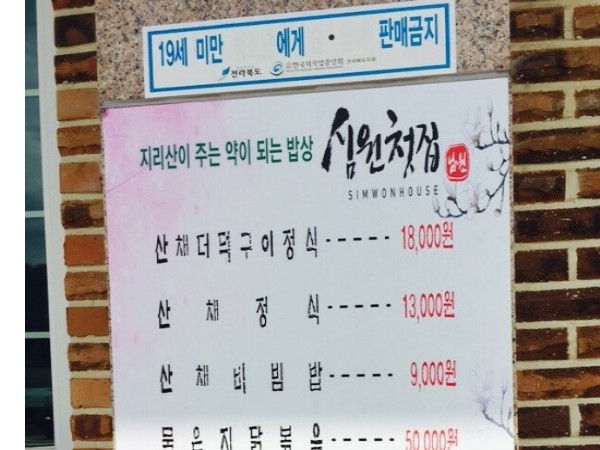 19세 미만 에게 판매금지
전라북도 한국외식업중앙회 전라북도지회
지리산이 주는 약이 되는 밥상 심원첫집 남원
SIMWONHOUSE
산채더덕구이정식 ----- 18,000원
산채정식 ----- 13,000원
산채비빔밥 ----- 9,000원
묵은지닭볶음 ----- 50,000원